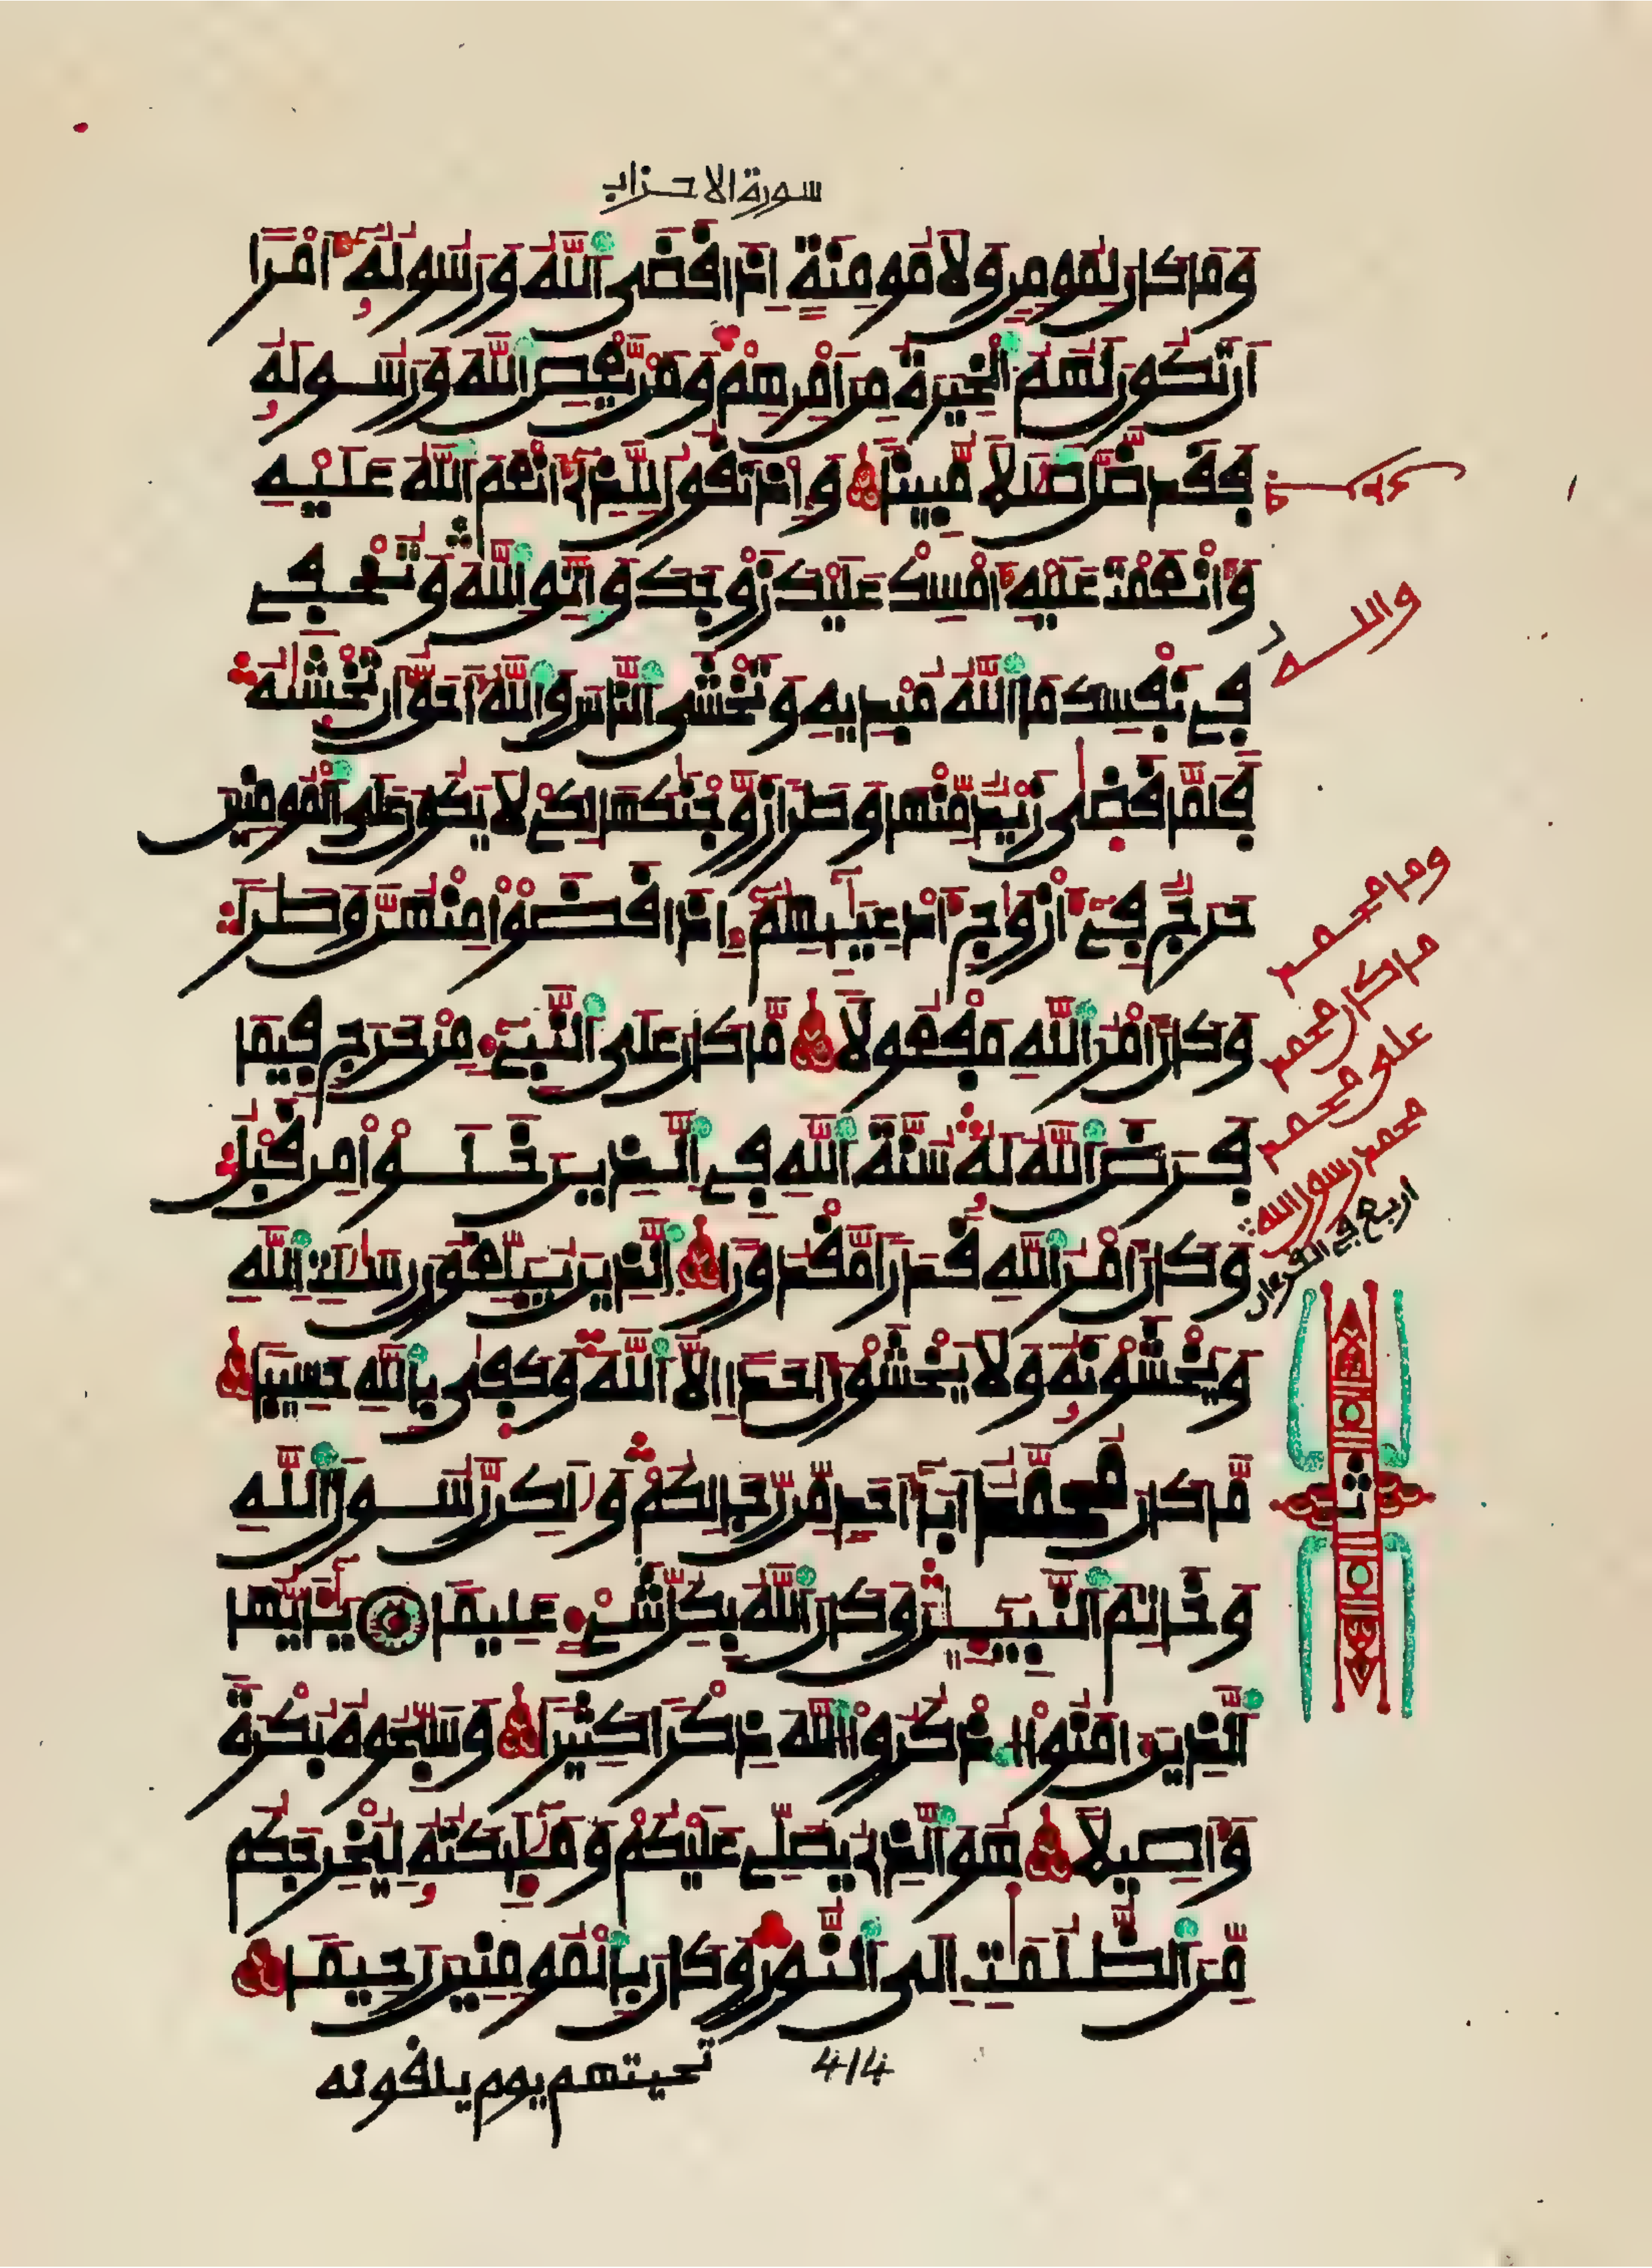 سورة الاحزاب
وَمَا كَانَ لِمُومِنٍ وَلَا مُومِنَةٍ اِذَا قَضَى اَ۬للَّهُ وَرَسُولُهُۥٓ أَمْراً
اَن تَكُونَ لَهُمُ اُ۬لْخِيَرَةُ مِنَ اَمْرِهِمْ وَمَنْ يَّعْصِ اِ۬للَّهَ وَرَسُولَهُۥ
فَقَد ضَّلَّ ضَلَٰلاً مُّبِيناً وَإِذْ تَقُولُ لِلَّذِےٓ أَنْعَمَ اَ۬للَّهُ عَلَيْهِ
وَأَنْعَمْتَ عَلَيْهِ أَمْسِكْ عَلَيْكَ زَوْجَكَ وَاتَّقِ اِ۬للَّهَ وَتُخْفِے
فِے نَفْسِكَ مَا اَ۬للَّهُ مُبْدِيهِ وَتَخْشَى اَ۬لنَّاسَ وَاللَّهُ أَحَقُّ أَن تَخْشَيٰهُ
فَلَمَّا قَضَىٰ زَيْدٌ مِّنْهَا وَطَراً زَوَّجْنَٰكَهَا لِكَےْ لَا يَكُونَ عَلَى اَ۬لْمُومِنِينَ
حَرَجٌ فِےٓ أَزْوَٰجِ أَدْعِيَآئِهِمُۥٓ إِذَا قَضَوْاْ مِنْهُنَّ وَطَراً
وَكَانَ أَمْرُ اُ۬للَّهِ مَفْعُولاً مَّا كَانَ عَلَى اَ۬لنَّبِےٓءِ مِنْ حَرَجٍ فِيمَا
فَرَضَ اَ۬للَّهُ لَهُۥ سُنَّةَ اَ۬للَّهِ فِے اِ۬لذِينَ خَلَوْاْ مِن قَبْلُ
وَكَانَ أَمْرُ اُ۬للَّهِ قَدَراً مَّقْدُوراً اِ۬لذِينَ يُبَلِّغُونَ رِسَٰلَٰتِ اِ۬للَّهِ
وَيَخْشَوْنَهُۥ وَلَا يَخْشَوْنَ أَحَداً اِلَّا اَ۬للَّهَ وَكَفَىٰ بِاللَّهِ حَسِيباً
مَّا كَانَ مُحَمَّدٌ اَبَآ أَحَدٍ مِّن رِّجَالِكُمْ وَلَٰكِن رَّسُولَ اَ۬للَّهِ
وَخَاتِمَ اَ۬لنَّبِيٓـِٕينَ وَكَانَ اَ۬للَّهُ بِكُلِّ شَےْءٍ عَلِيماً يَٰٓأَيُّهَا
اَ۬لذِينَ ءَامَنُواْ اُ۟ذْكُرُواْ اُ۬للَّهَ ذِكْراً كَثِيراً وَسَبِّحُوهُ بُكْرَةً
وَأَصِيلاً هُوَ اَ۬لذِے يُصَلِّے عَلَيْكُمْ وَمَلَٰٓئِكَتُهُۥ لِيُخْرِجَكُم
مِّنَ اَ۬لظُّلُمَٰتِ إِلَى اَ۬لنُّورِ وَكَانَ بِالْمُومِنِينَ رَحِيماً
تحيتهم يوم يلقونه
414
والله
وما محمد
ما كان محمد
على محمد
محمد رسول الله
اربع في القرءان
ث